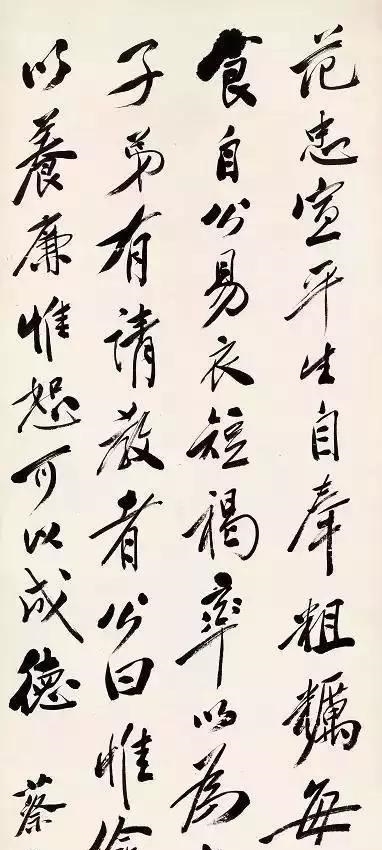 范忠宣平生自奉粗糲每
食自公易衣短褐率以為
子弟有請教者公曰惟
以養廉惟恕可以成德
蔡